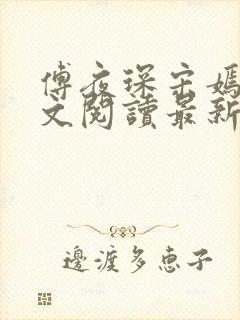 傅夜琛宋嫣
文閱讀最新
邊渡多惠子